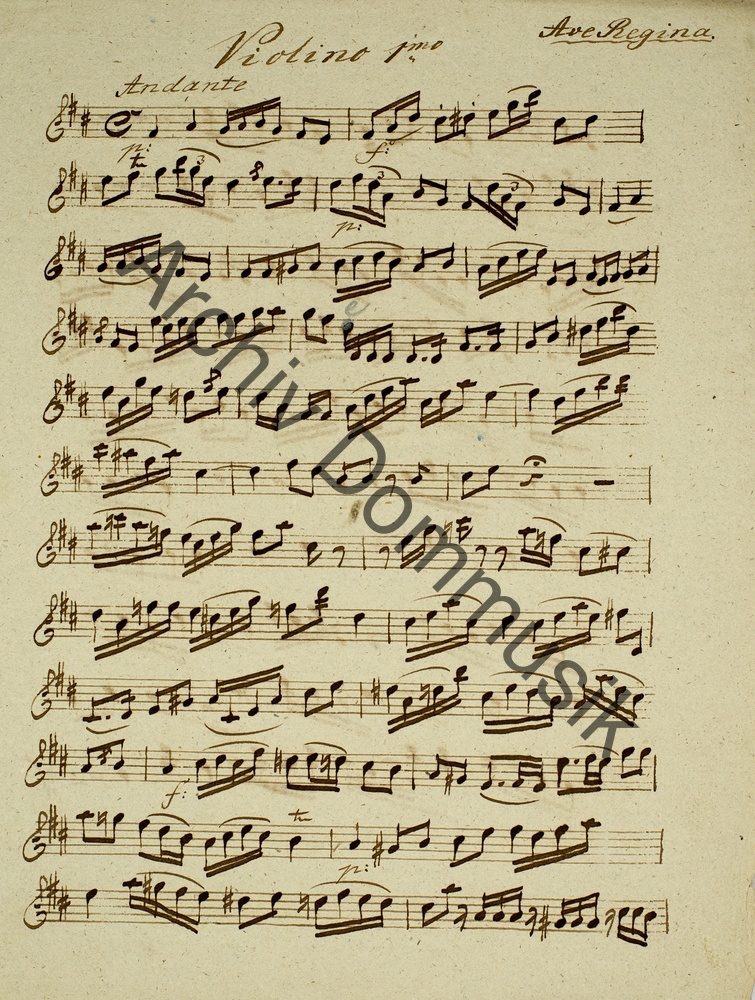 Ave Regina.
Violino 1mo
Andante
p:
f:
tr
3
3
3
p:
f:
tr
p:
Archiv Dommusik